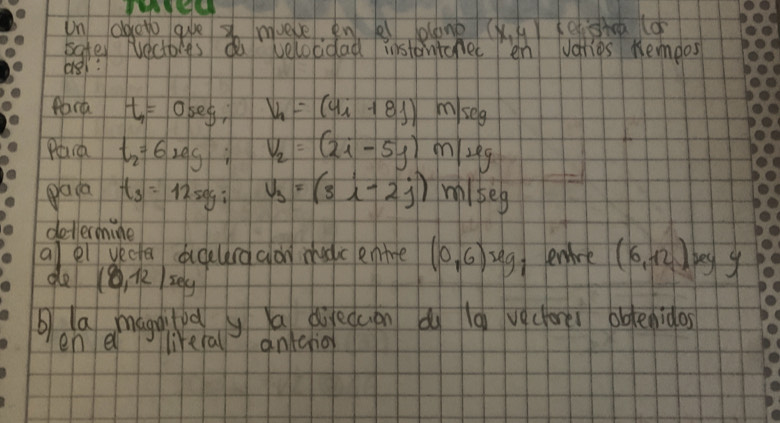 Tarea
Un objeto que se mueve en el plano (x,y) registra los
sgtes vectores de velocidad instantanec en varios tiempos
asi:
Para t₁= 0seg; V₁ = (4i +8j) m/seg
Para t₂=6seg ; V₂ = (2i - 5j) m/seg
para t₃= 12seg; V₃ = (3 i - 2j) m/seg
determine
a) el vector aceleración media entre (0,6)seg; entre (6,12)seg y
de (0,12)seg
b) la magnitud y la dirección de los vectores obtenidos
en el literal anterior